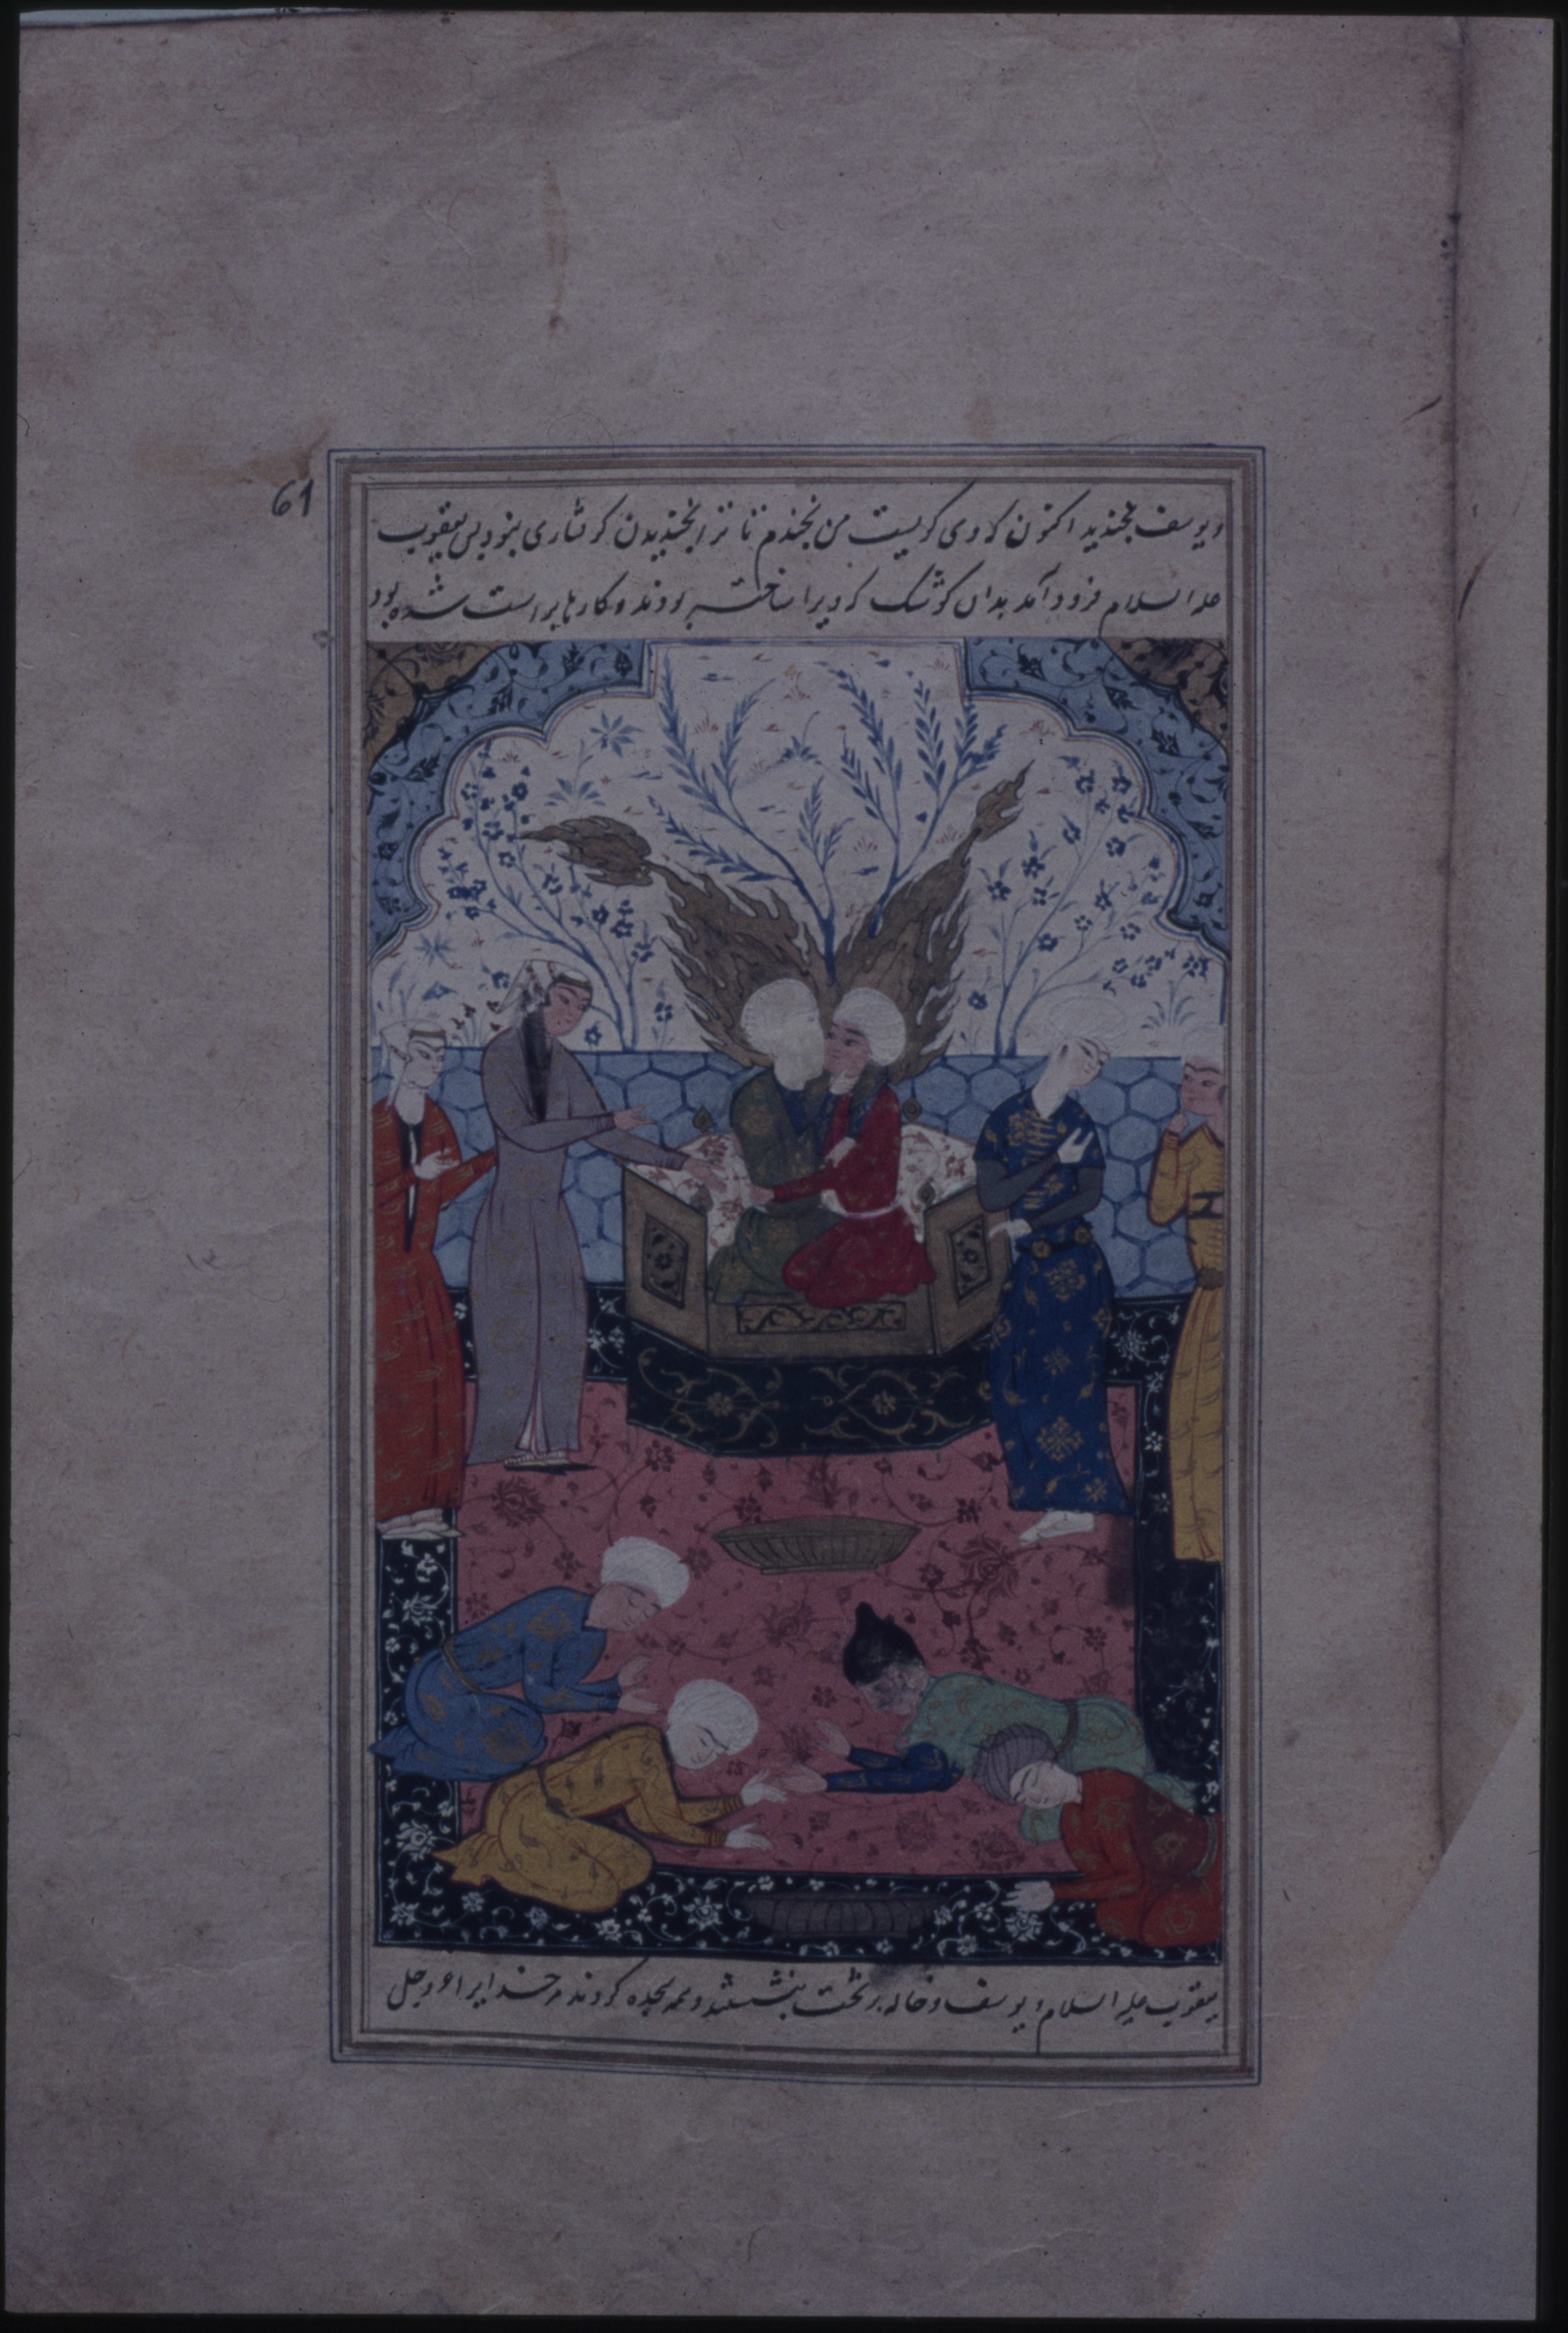 61
و یوسف بخندید اکنون که وی گریست من نخندم تا ترا نخندیدن گرفتاری بنود پس یعقوب
علیه السلام فرود آمد بدان کوشک که ویرا ساخته بودند و کارها براست شده بود
یعقوب علیه السلام و یوسف و خاله بر تخت بنشستند و همه سجده کردند مر خدایرا عز وجل